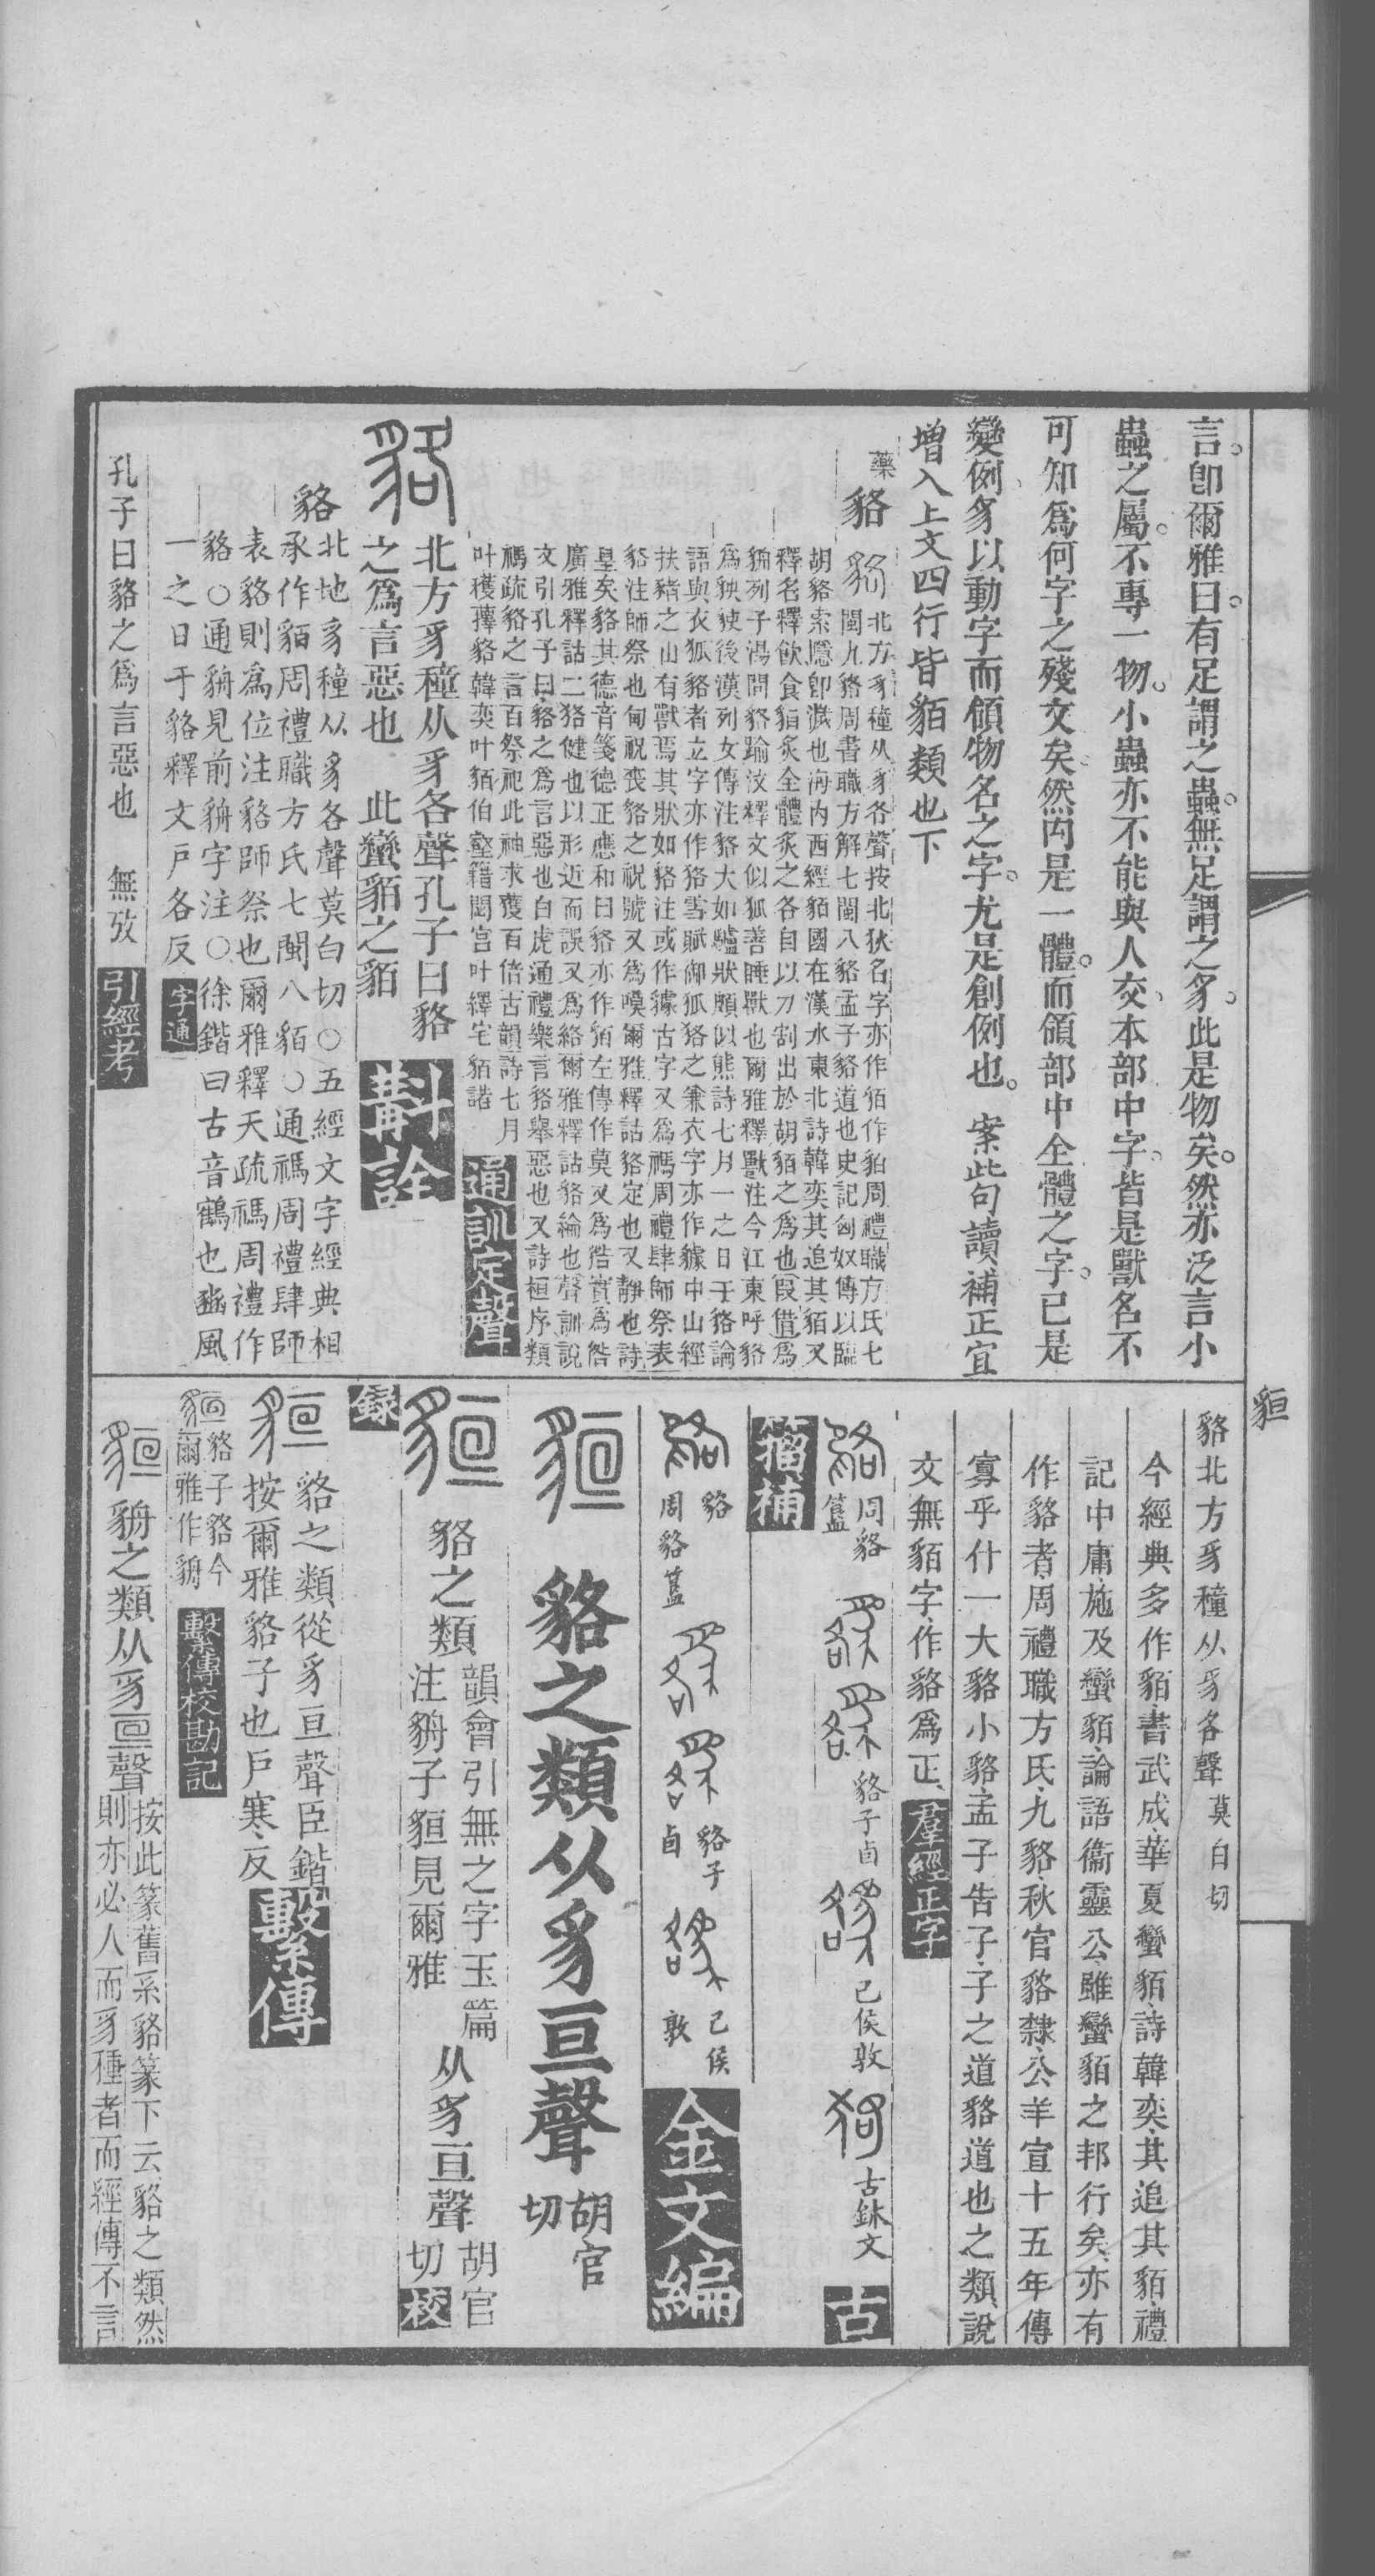 言卽爾雅曰有足謂之蟲無足謂之豸此是物矣然亦泛言小
蟲之屬不專一物小蟲亦不能與人交本部中字皆是獸名不
可知爲何字之殘文矣然丙是一體而領部中全體之字已是
變例豸以動字而領物名之字尤是創例也 案此句讀補正宜
增入上文四行皆貊類也下
藥
貉
北方豸種从豸各聲按北狄名字亦作狛作貊周禮職方氏七
閩九貉周書職方解七閩八貉孟子貉道也史記匈奴傳以臨
胡貉索隱卽濊也海內西經貊國在漢水東北詩韓奕其追其貊又
釋名釋飲食貊炙全體炙之各自以刀割出於胡貊之爲也叚借爲
貈列子湯問貉踰汶釋文似狐善睡獸也爾雅釋獸注今江東呼貉
爲㹮㹮後漢列女傳注貉大如驢狀頗似熊詩七月一之日于貉論
語與衣狐貉者立字亦作狢雪賦御狐狢之兼衣字亦作㺉中山經
扶豬之山有獸焉其狀如貉注或作㺉古字又爲禡周禮肆師祭表
貉注師祭也甸祝表貉之祝號又爲嗼爾雅釋詁貉定也又靜也詩
皇矣貉其德音箋德正應和曰貉亦作狛左傳作莫又爲㗉實爲㗉
廣雅釋詁二狢健也以形近而誤又爲絡爾雅釋詁貉綸也聲訓說
文引孔子曰貉之爲言惡也白虎通禮樂言貉舉惡也又詩桓序類
禡疏貉之言百祭祀此神求獲百倍古韻詩七月
叶穫蘀貉韓奕叶貊伯壑籍閟宮叶繹宅貊諾
通訓定聲
北方豸穜从豸各聲孔子曰貉
之爲言惡也 此蠻貊之貊
斠詮
貉
北地豸種从豸各聲莫白切○五經文字經典相
承作貊周禮職方氏七閩八貊○通禡周禮肆師
表貉則爲位注貉師祭也爾雅釋天疏禡周禮作
貉○通貈見前貈字注○徐鍇曰古音鶴也豳風
一之日于貉釋文戶各反
字通
孔子曰貉之爲言惡也 無攷
引經考
貆
貉北方豸穜从豸各聲莫白切
今經典多作貊書武成華夏蠻貊詩韓奕其追其貊禮
記中庸施及蠻貊論語衞靈公雖蠻貊之邦行矣亦有
作貉者周禮職方氏九貉秋官貉隸公羊宣十五年傳
寡乎什一大貉小貉孟子告子子之道貉道也之類說
文無貊字作貉爲正
羣經正字
周貉簋
貉子卣
己侯敦
古鉥文
古
籀補
貉
周貉簋
貉子卣
己侯敦
金文編
貉之類从豸亘聲胡官切
貉之類
韻會引無之字玉篇
注貈子貆見爾雅
从豸亘聲胡官切
校
錄
貉之類從豸亘聲臣鍇
按爾雅貉子也戶寒反
繫傳
貉子貉今
爾雅作貈
繫傳校勘記
貈之類从豸亘聲
按此篆舊系貉篆下云貉之類然
則亦必人而豸種者而經傳不言